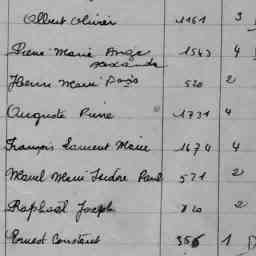 Albert Olivier 1161 3
Pierre Marie Ange 1543 4
Alexandre
Henri Marie 520 2
Auguste Pierre 1731 4
François Laurent Marie 1674 4
Marcel Marie Isidore Paul 571 2
Raphaël Joseph 820 2
Ernest Constant 356 1